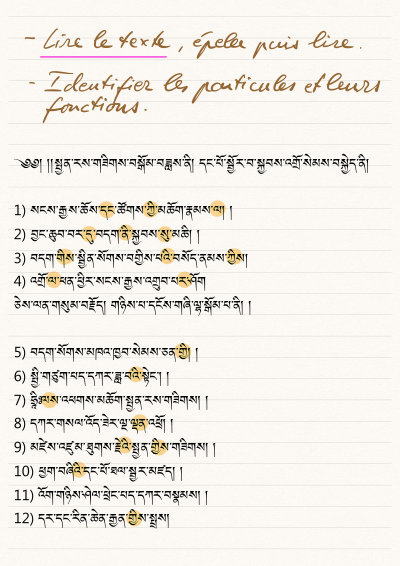 - Lire le texte, épeler puis lire.
- Identifier les particules et leurs
fonctions.
༄༅། །།སྤྱན་རས་གཟིགས་བསྒོམ་བཟླས་ནི། དང་པོ་སྦྱོར་བ་སྐྱབས་འགྲོ་སེམས་བསྐྱེད་ནི།
1) སངས་རྒྱས་ཆོས་དང་ཚོགས་ཀྱི་མཆོག་རྣམས་ལ། །
2) བྱང་ཆུབ་བར་དུ་བདག་ནི་སྐྱབས་སུ་མཆི། །
3) བདག་གིས་སྦྱིན་སོགས་བགྱིས་པའི་བསོད་ནམས་ཀྱིས།
4) འགྲོ་ལ་ཕན་ཕྱིར་སངས་རྒྱས་འགྲུབ་པར་ཤོག
ཅེས་ལན་གསུམ་བརྗོད། གཉིས་པ་དངོས་གཞི་ལྷ་སྒོམ་པ་ནི། །
5) བདག་སོགས་མཁའ་ཁྱབ་སེམས་ཅན་གྱི། །
6) སྤྱི་གཙུག་པད་དཀར་ཟླ་བའི་སྟེང་། །
7) ཧྲཱིཿལས་འཕགས་མཆོག་སྤྱན་རས་གཟིགས། །
8) དཀར་གསལ་འོད་ཟེར་ལྔ་ལྡན་འཕྲོ། །
9) མཛེས་འཛུམ་ཐུགས་རྗེའི་སྤྱན་གྱིས་གཟིགས། །
10) ཕྱག་བཞིའི་དང་པོ་ཐལ་སྦྱར་མཛད། །
11) འོག་གཉིས་ཤེལ་ཕྲེང་པད་དཀར་བསྣམས། །
12) དར་དང་རིན་ཆེན་རྒྱན་གྱིས་སྤྲས།